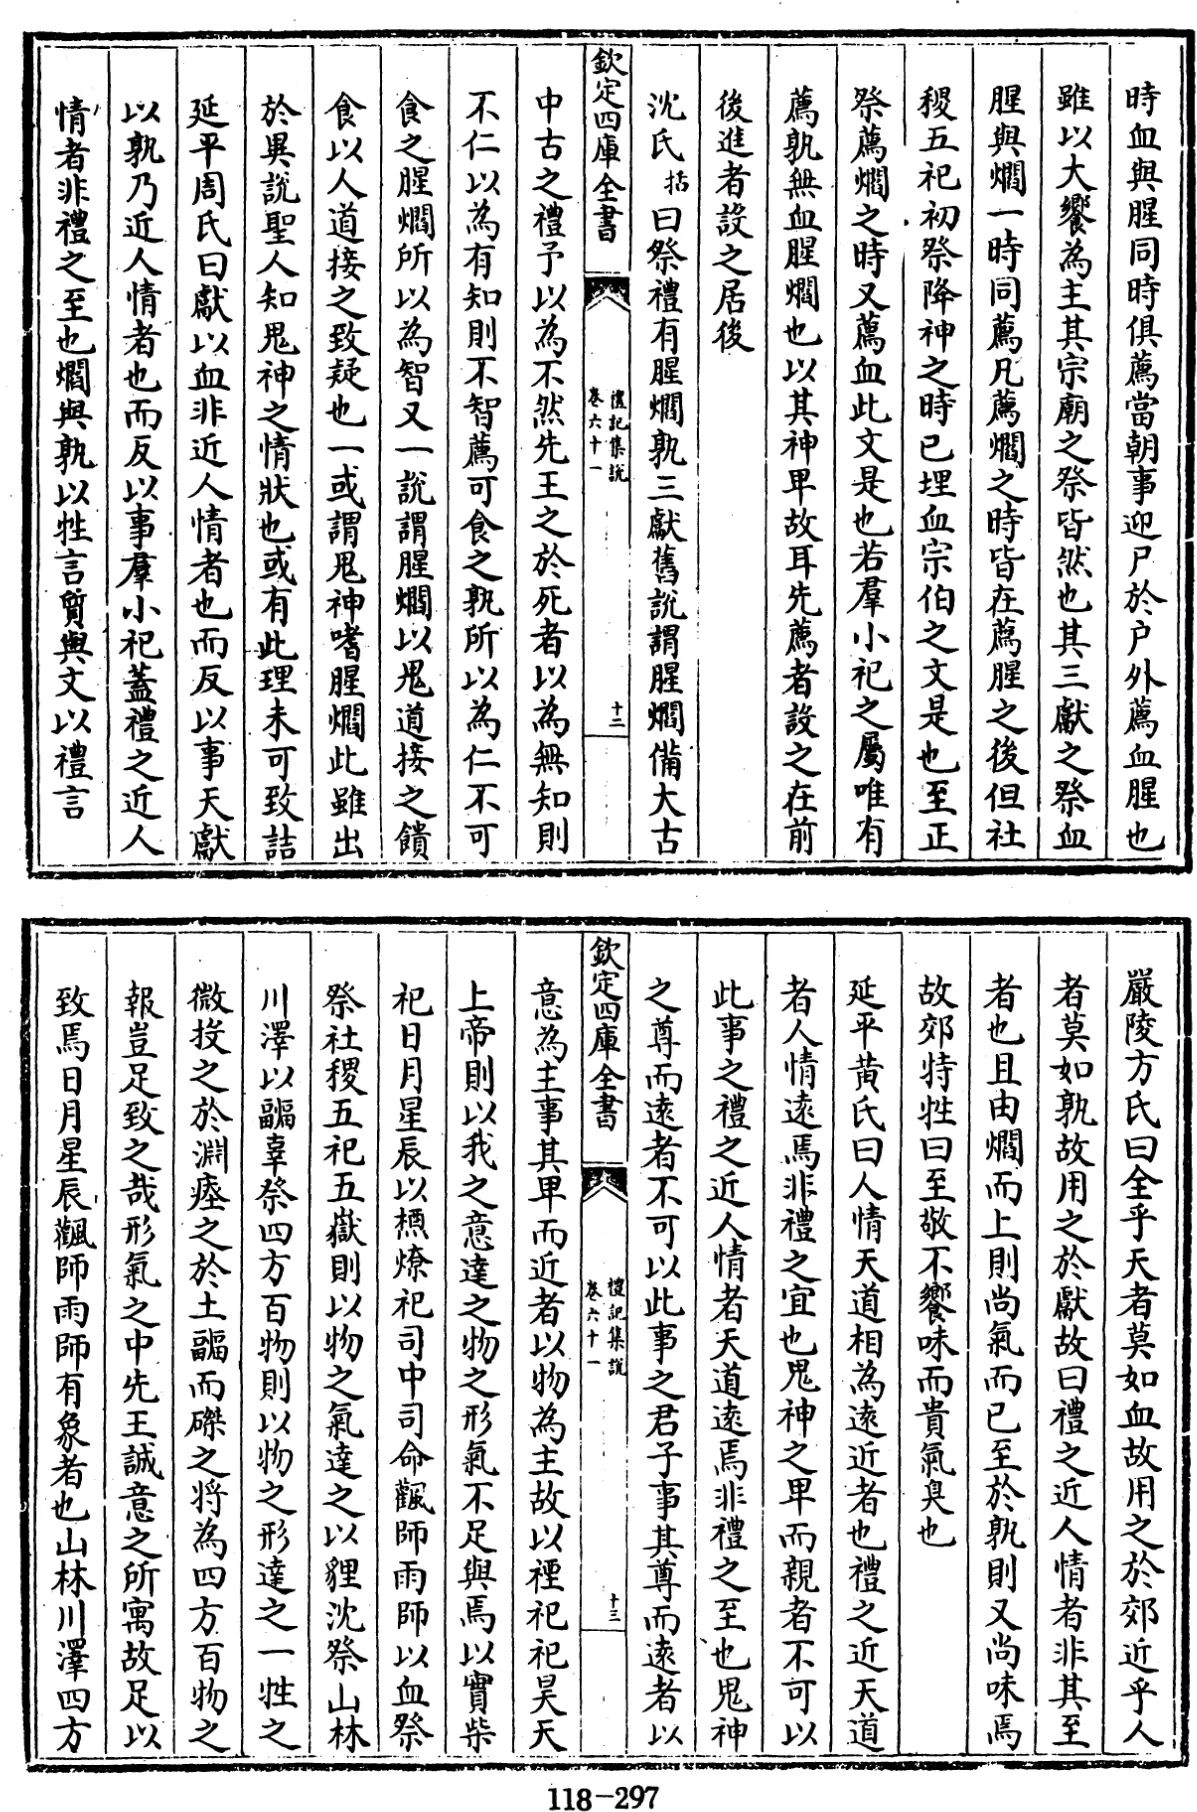 時血與腥同時俱薦當朝事迎尸於户外薦血腥也
雖以大饗為主其宗廟之祭皆然也其三獻之祭血
腥與爓一時同薦凡薦爓之時皆在薦腥之後但社
稷五祀初祭降神之時已埋血宗伯之文是也至正
祭薦爓之時又薦血此文是也若羣小祀之屬唯有
薦孰無血腥爓也以其神卑故耳先薦者設之在前
後進者設之居後
沈氏括曰祭禮有腥爓孰三獻舊說謂腥爓備大古
欽定四庫全書
禮記集說
卷六十一
十二
中古之禮予以為不然先王之於死者以為無知則
不仁以為有知則不智薦可食之孰所以為仁不可
食之腥爓所以為智又一說謂腥爓以鬼道接之饋
食以人道接之致疑也一或謂鬼神嗜腥爓此雖出
於異說聖人知鬼神之情狀也或有此理未可致詰
延平周氏曰獻以血非近人情者也而反以事天獻
以孰乃近人情者也而反以事羣小祀蓋禮之近人
情者非禮之至也爓與孰以牲言質與文以禮言
嚴陵方氏曰全乎天者莫如血故用之於郊近乎人
者莫如孰故用之於獻故曰禮之近人情者非其至
者也且由爓而上則尚氣而已至於孰則又尚味焉
故郊特牲曰至敬不饗味而貴氣臭也
延平黄氏曰人情天道相為遠近者也禮之近天道
者人情遠焉非禮之宜也鬼神之卑而親者不可以
此事之禮之近人情者天道遠焉非禮之至也鬼神
之尊而遠者不可以此事之君子事其尊而遠者以
欽定四庫全書
禮記集說
卷六十一
十三
意為主事其卑而近者以物為主故以禋祀祀昊天
上帝則以我之意達之物之形氣不足與焉以實柴
祀日月星辰以槱燎祀司中司命飌師雨師以血祭
祭社稷五祀五嶽則以物之氣達之以貍沈祭山林
川澤以疈辜祭四方百物則以物之形達之一牲之
微投之於淵瘞之於土疈而磔之将為四方百物之
報豈足致之哉形氣之中先王誠意之所寓故足以
致焉日月星辰飌師雨師有象者也山林川澤四方
118-297